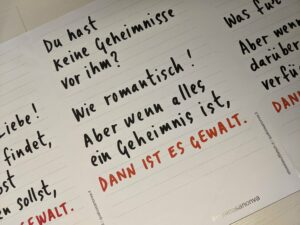 Du hast
keine Geheimnisse
vor ihm?
Wie romantisch!
Aber wenn alles
ein Geheimnis ist,
DANN IST ES GEWALT.
Liebe!
findet,
sollst,
GEWALT.
Was
Aber wenn
darüber